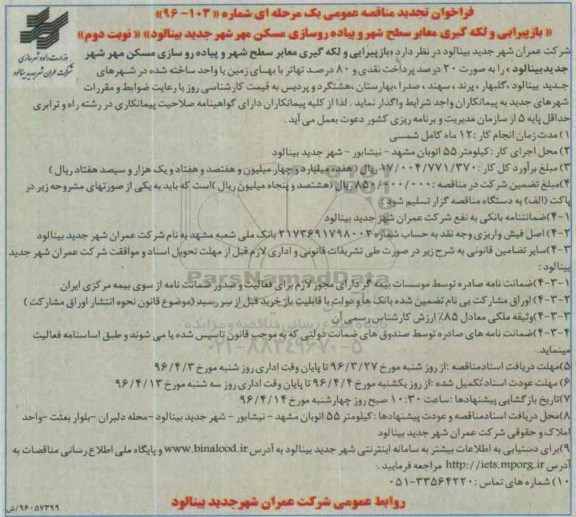 فراخوان تجدید مناقصه عمومی یک مرحله ای شماره «۱۰۳-۹۶»
« بازپیرایی و لکه گیری معابر سطح شهر و پیاده روسازی مسکن مهر شهر جدید بینالود» « نوبت دوم»
وزارت راه و شهرسازی
شرکت عمران شهر جدید بینالود
شرکت عمران شهر جدید بینالود در نظر دارد «بازپیرایی و لکه گیری معابر سطح شهر و پیاده رو سازی مسکن مهر شهر
جدید بینالود» را به صورت ۲۰ درصد پرداخت نقدی و ۸۰ درصد تهاتر با بهای زمین یا واحد ساخته شده در شهرهای
جدید بینالود ،گلبهار ،پرند ،سهند ، صدرا ،بهارستان ،هشتگرد و پردیس به قیمت کارشناسی روز با رعایت ضوابط و مقررات
شهرهای جدید به پیمانکاران واجد شرایط واگذار نماید . لذا از کلیه پیمانکاران دارای گواهینامه صلاحیت پیمانکاری در رشته راه و ترابری
حداقل پایه ۵ از سازمان مدیریت و برنامه ریزی کشور دعوت بعمل می آید .
۱)مدت زمان انجام کار :۱۲ ماه کامل شمسی
۲)محل اجرای کار : کیلومتر ۵۵ اتوبان مشهد - نیشابور - شهر جدید بینالود
۳)مبلغ برآورد کل کار : ۱۷/۰۰۴/۷۷۱/۳۷۰ ریال (هفده میلیارد و چهار میلیون و هفتصد و هفتاد و یک هزار و سیصد هفتاد ریال )
۴)مبلغ تضمین شرکت در مناقصه : ۸۵۰/۰۰۰/۰۰۰ ریال (هشتصد و پنجاه میلیون ریال )است که باید به یکی از صورتهای مشروحه زیر در
پاکت (الف) به دستگاه مناقصه گزار تسلیم شود :
۴-۱)ضمانتنامه بانکی به نفع شرکت عمران شهر جدید بینالود
۴-۲) اصل فیش واریزی وجه نقد به حساب شماره ۲۱۷۳۶۹۱۷۹۸۰۰۲ بانک ملی شعبه مشهد به نام شرکت عمران شهر جدید بینالود
۴-۳)سایر تضامین قانونی به شرح زیر در صورت طی تشریفات قانونی و اداری لازم قبل از مهلت تحویل اسناد و موافقت شرکت عمران شهر جدید
بینالود :
۴-۳-۱)ضمانت نامه صادره توسط موسسات بیمه گر دارای مجوز لازم برای فعالیت و صدور ضمانت نامه از سوی بیمه مرکزی ایران
۴-۳-۲) اوراق مشارکت بی نام تضمین شده بانک ها و دولت با قابلیت باز خرید قبل از سر رسید (موضوع قانون نحوه انتشار اوراق مشارکت )
۴-۳-۳)وثیقه ملکی معادل ۸۵% ارزش کارشناس رسمی آن
۴-۳-۴)ضمانت نامه های صادره توسط صندوق های ضمانت دولتی که به موجب قانون تاسیس شده یا می شوند و طبق اساسنامه فعالیت
مینماید.
۵)مهلت دریافت اسناد مناقصه :از روز شنبه مورخ ۹۶/۳/۲۷ تا پایان وقت اداری روز شنبه مورخ ۹۶/۴/۳
۶) مهلت عودت اسناد تکمیل شده :از روز یکشنبه مورخ ۹۶/۴/۴ تا پایان وقت اداری روز سه شنبه مورخ ۹۶/۴/۱۳
۷)تاریخ بازگشایی پیشنهادها : ساعت ۱۰:۳۰ صبح روز چهارشنبه مورخ ۹۶/۴/۱۴
۸)محل دریافت اسناد مناقصه و عودت پیشنهادها : کیلومتر ۵۵ اتوبان مشهد - نیشابور - شهر جدید بینالود -محله دلبران -بلوار بعثت -واحد
املاک و حقوقی شرکت عمران شهر جدید بینالود
۹)برای دستیابی به اطلاعات بیشتر به سامانه اینترنتی شهر جدید بینالود به آدرس www.binalood.ir و پایگاه ملی اطلاع رسانی مناقصات به
آدرس http://iets.mporg.ir مراجعه فرمایید .
۱۰)شماره های تماس : ۳۳۵۶۴۲۲۰-۰۵۱
روابط عمومی شرکت عمران شهر جدید بینالود
۹۶۰۵۷۳۹۹/ش
ParsNamadData
۰۲۱-۸۸۳۴۹۶۷۰-۵